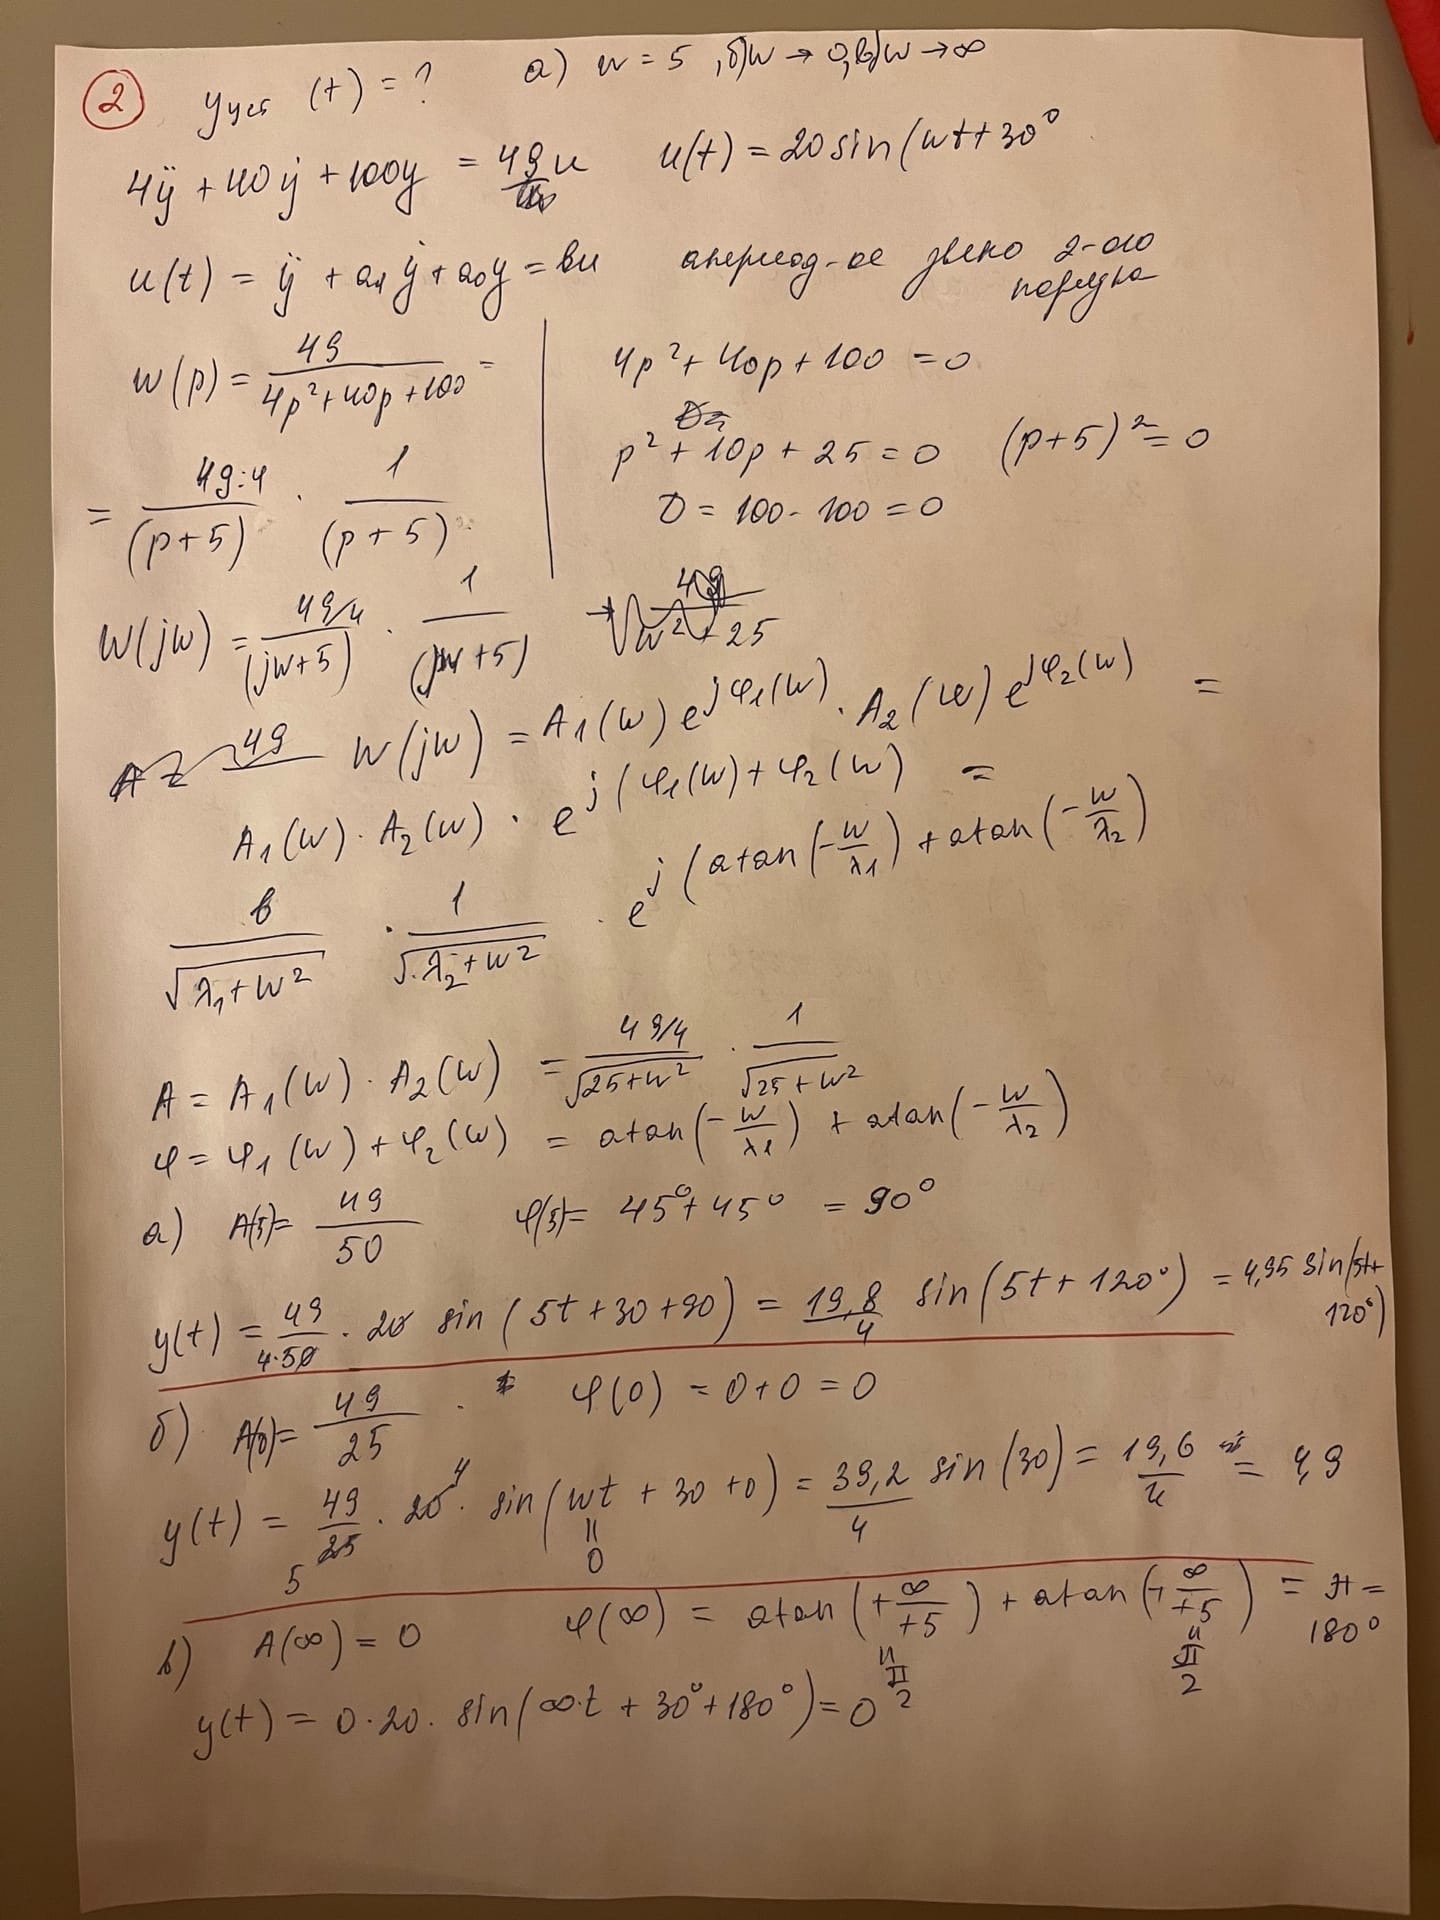 2 yуст (t) = ? а) w = 5 , б) w → 0, в) w → ∞
4ÿ + 40ẏ + 100y = 49u u(t) = 20 sin(wt + 30°
u(t) = ÿ + a₁ẏ + a₀y = bu апериод-ое звено 2-ого порядка
w(p) = 49/(4p² + 40p + 100) =
4p² + 40p + 100 = 0
p² + 10p + 25 = 0 (p+5)² = 0
D = 100 - 100 = 0
= 49:4/(p+5) · 1/(p+5)
W(jw) = 49/4/(jw+5) · 1/(jw+5)
W(jw) = A₁(w) e^jφ₁(w) · A₂(w) e^jφ₂(w) =
A₁(w) · A₂(w) · e^j(φ₁(w) + φ₂(w) =
b/√(λ₁ + w²) · 1/√(λ₂ + w²) · e^j(atan(-w/λ₁) + atan(-w/λ₂)
A = A₁(w) · A₂(w) = 49/4/√(25+w²) · 1/√(25+w²)
φ = φ₁(w) + φ₂(w) = atan(-w/λ₁) + atan(-w/λ₂)
а) A(5) = 49/50 φ(5) = 45° + 45° = 90°
y(t) = 49/(4·50) · 20 sin(5t + 30 + 90) = 19,8/4 sin(5t + 120°) = 4,95 sin(5t + 120°)
б) A(0) = 49/25 · φ(0) = 0 + 0 = 0
y(t) = 49/25 · 20 · sin(wt + 30 + 0) = 39,2/4 sin(30) = 19,6/4 = 4,9
4
5
=
0
в) A(∞) = 0 φ(∞) = atan(+∞/+5) + atan(+∞/+5) = π = 180°
π/2
π/2
y(t) = 0 · 20 · sin(∞·t + 30° + 180°) = 0